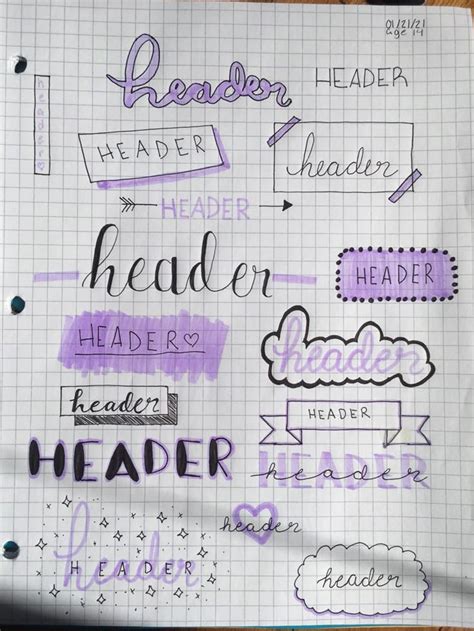 01/21/21
age 14
header
HEADER
header♡
HEADER
header
HEADER
header
HEADER
HEADER♡
header
header
HEADER
HEADER
HEADER
header
header
header
HEADER
header